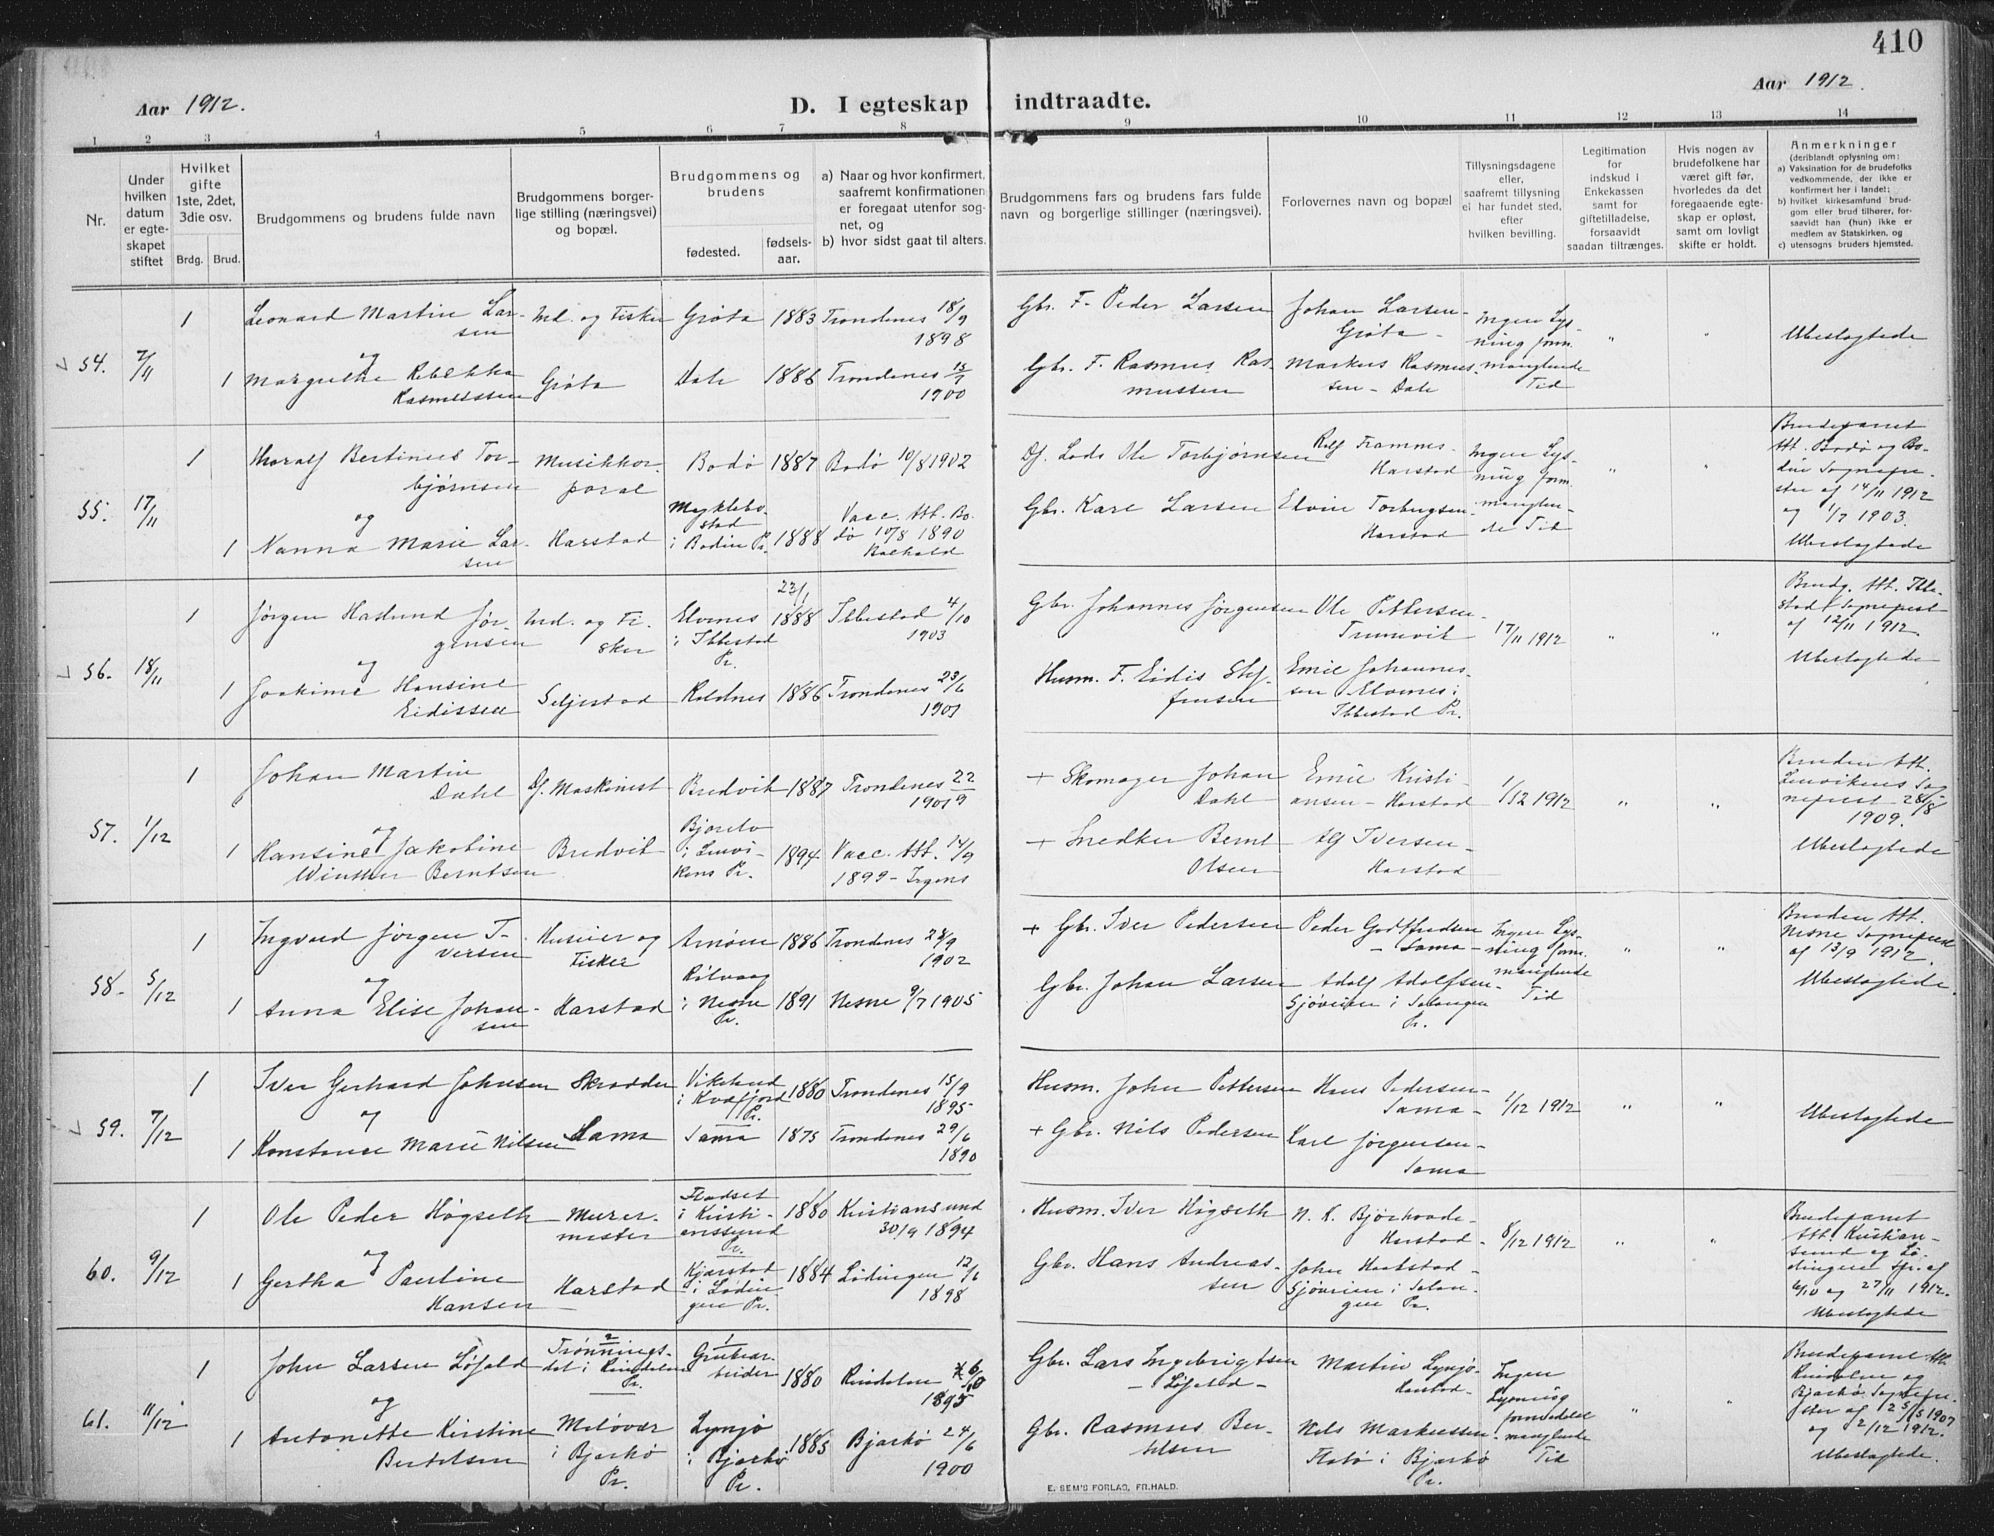 410
Aar 1912.
D. I egteskap indtraadte.
Aar 1912.
1 2 3 4 5 6 7 8 9 10 11 12 13 14
Nr.
Under
hvilken
datum
er egte-
skapet
stiftet
Hvilket
gifte
1ste, 2det,
3die osv.
Brdg. Brud.
Brudgommens og brudens fulde navn
Brudgommens borger-
lige stilling (næringsvei)
og bopæl.
Brudgommens og
brudens
fødested.
fødsels-
aar.
a) Naar og hvor konfirmert,
saafremt konfirmationen
er foregaat utenfor sog-
net, og
b) hvor sidst gaat til alters.
Brudgommens fars og brudens fars fulde
navn og borgerlige stillinger (næringsvei).
Forlovernes navn og bopæl
Tillysningsdagene
eller,
saafremt tillysning
ei har fundet sted,
efter
hvilken bevilling.
Legitimation
for
indskud i
Enkekassen
samt for
giftetilladelse,
forsaavidt
saadan tiltrænges.
Hvis nogen av
brudefolkene har
været gift før,
hvorledes da det
foregaaende egte-
skap er opløst,
samt om lovligt
skifte er holdt.
Anmerkninger
(deriblandt oplysning om:
a) Vaksination for de brudefolks
vedkommende, der ikke er
konfirmert her i landet;
b) hvilket kirkesamfund brud-
gom eller brud tilhører, for-
saavidt han (hun) ikke er
medlem av Statskirken, og
c) utensogns bruders hjemsted.
54. 7/11
1 Leonard Martin Lar-
sen
Ind. og Fisker
Grøta 1883 Trondenes 18/9
1898
Gbr. F. Peder Larsen
Johan Larsen-
Grøta -
Ingen Lys-
ning form.
manglende
Tid
" "
Ubeslægtede
og
1 Margrethe Rebekka
Rasmussen
Grøta
Dale 1886 Trondenes 15/7
1900
Gbr. F. Rasmus Ras-
mussen
Markus Rasmus-
sen - Dale
55. 17/11
1 Tharalf Bertinus Tor-
bjørnsen
Musikkor-
poral
Bodø 1887 Bodø 10/8 1902
Df. Lods Ole Torbjørnsen
Rolf Framnes-
Harstad
Ingen Lys-
ning form.
manglen-
de Tid
" "
Brudeparret
Att. Bodø og Bo-
din Sognepre-
ster af 14/11 1912
og 1/7 1903.
Ubeslægtede
og
1 Nanna Marie Lar-
sen
Harstad
Myklebo-
stad
i Bodin Pr. 1888
Vacc. Att. Bo-
dø 10/8 1890
Gbr. Karl Larsen
Harstad
56. 18/11
1 Jørgen Haslund Jør-
gensen
Ind. og Fi-
sker
Elvenes
i Ibbestad
Pr.
23/1
1888
Ibbestad 4/10
1903
Gbr. Johannes Jørgensen
Ole Pettersen-
17/11 1912
" "
Brudg. Att. Ibbe-
stad Sogneprest
af 12/11 1912.
Ubeslægtede
og
1 Joakime Hansine
Eidissen
Seljestad
Roldnes 1886 Trondenes 23/6
1901
Husm. F. Eidis Stef-
fensen
Emil Johannes-
sen Elvenes i
Ibbestad Pr.
57. 1/12
1 Johan Martin
Dahl
Df. Maskinist
Bredvik 1887 Trondenes 22/9
1901
+ Skomager Johan
Dahl
Emil Kristi-
ansen - Harstad
1/12 1912
" "
Bruden Att.
Lenvikens Sog
neprest 28/8
1909.
Ubeslægtede
og
1 Hansine Jakobine
Winther Berntsen
Bredvik
i Lenvi-
kens Pr.
1894
Vacc. Att. 14/9
1899 - Irgens
+ Snedker Bernt
Olsen
Iversen -
Harstad
58. 5/12
1 Ingvard Jørgen I-
versen
Huseier og
Fisker
Arnøen 1886 Trondenes 28/9
1902
+ Gbr. Iver Pedersen
Peder Godtfredsen
- Sama -
Ingen Lys-
ning form.
manglende
Tid
" "
Bruden Att.
Nesne Sogneprest
af 13/9 1912.
Ubeslægtede.
og
1 Anna Elise Johan-
sen
Harstad
i Nesne
Pr.
1891 Nesne 9/7 1905
Gbr. Johan Larsen
Adolf Adolfsen-
Sjøveien i Salangen
Pr.
59. 7/12
1 Iver Gerhard Johnsen
Skrædder
i Kvæfjord
Pr.
1880 Trondenes 15/9
1895
Husm. John Pettersen
Hans Pedersen-
Sama -
1/12 1912
" "
Ubeslægtede
og
1 Konstance Marie Nilsen
Sama
Sama 1875 Trondenes 29/6
1890
+ Gbr. Nils Pedersen
Karl Jørgensen-
Sama
60. 9/12
1 Ole Peder Høgseth
Murer-
mester
i Kristi-
anssund
Pr.
1880 Kristiansund
30/9 1894
Husm. Iver Høgseth
Harstad -
8/12 1912
" "
Brudeparret
Att. Kristian-
sund og Lø-
dingen Spr. af
6/10 og 27/11 1912.
Ubeslægtede
og
1 Gertha Pauline
Hansen
Harstad
Kjærstad
i Lødin-
gen Pr.
1884 Lødingen 12/6
1898
Gbr. Hans Andreas-
sen
Sjøveien i Salan-
gen Pr.
61. 11/12
1 John Larsen Løfald
2
Trønnings-
det i Rindalens
Pr.
1
Grubear-
beider
1880 Rindalen 6/10
1895
Gbr. Lars Ingebrigtsen
- Løfald -
Martin Lynjø-
Harstad -
Ingen
Lysning
formedelst
manglende
Tid
" "
Brudeparret Att.
Rindalen og
Bjarkø Sognepre-
ster af 25/5 1907
og 2/12 1912.
Ubeslægtede.
og
1 Antonette Kirstine
Bertelsen
Meløvær
i Bjarkø
Pr.
Lynjø
i Bjarkø
Pr.
1885 Bjarkø 24/6
1900
Gbr. Rasmus Ber-
telsen
Nils Markussen-
Flatø i Bjarkø
Pr.
E. SEM'S FORLAG, FR.HALD.